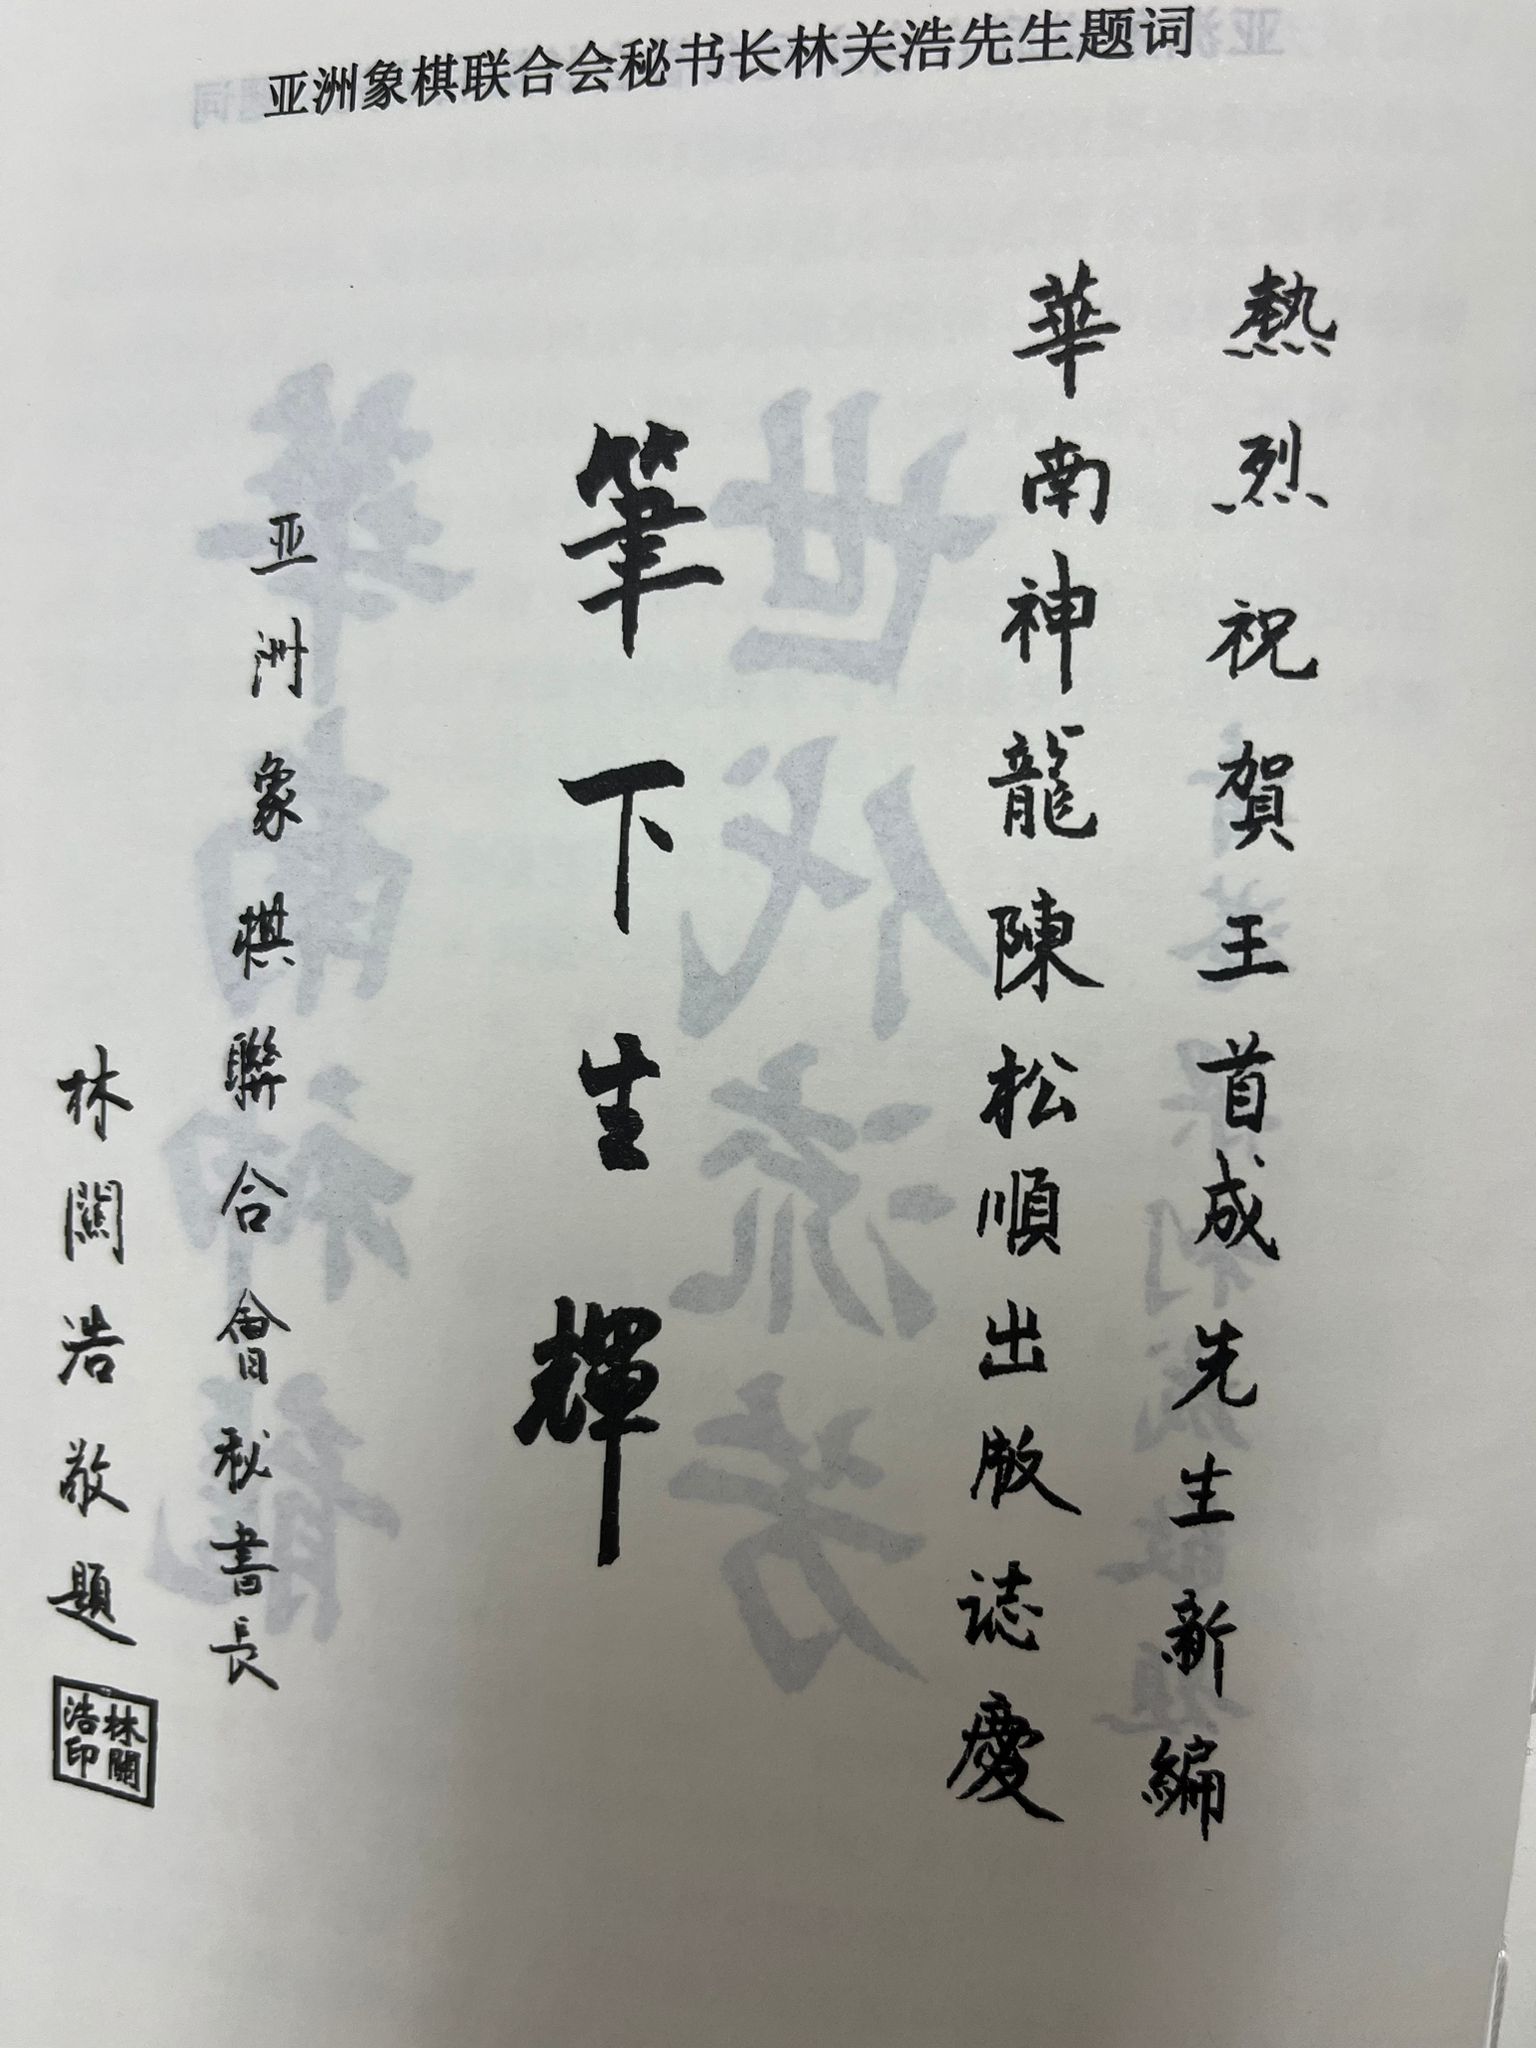 亚洲象棋联合会秘书长林关浩先生题词
熱烈祝賀王首成先生新編
華南神龍陳松順出版誌慶
筆下生輝
亚洲象棋聯合會秘書長
林關浩敬題
林關
浩印